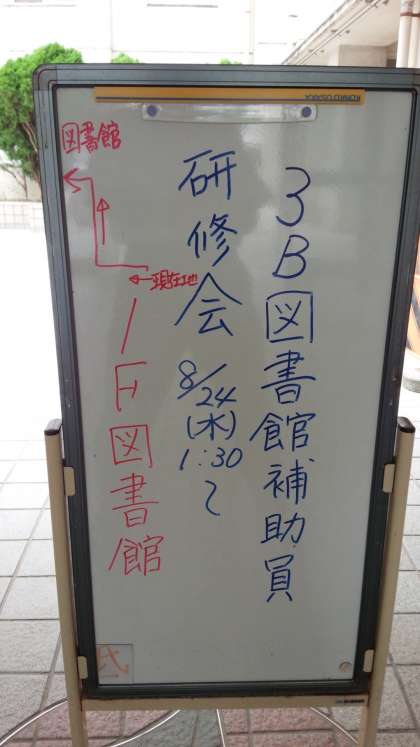 3B図書館補助員
研修会
8/24
(水)
1:30
〜
1F図書館
図書館
現在地